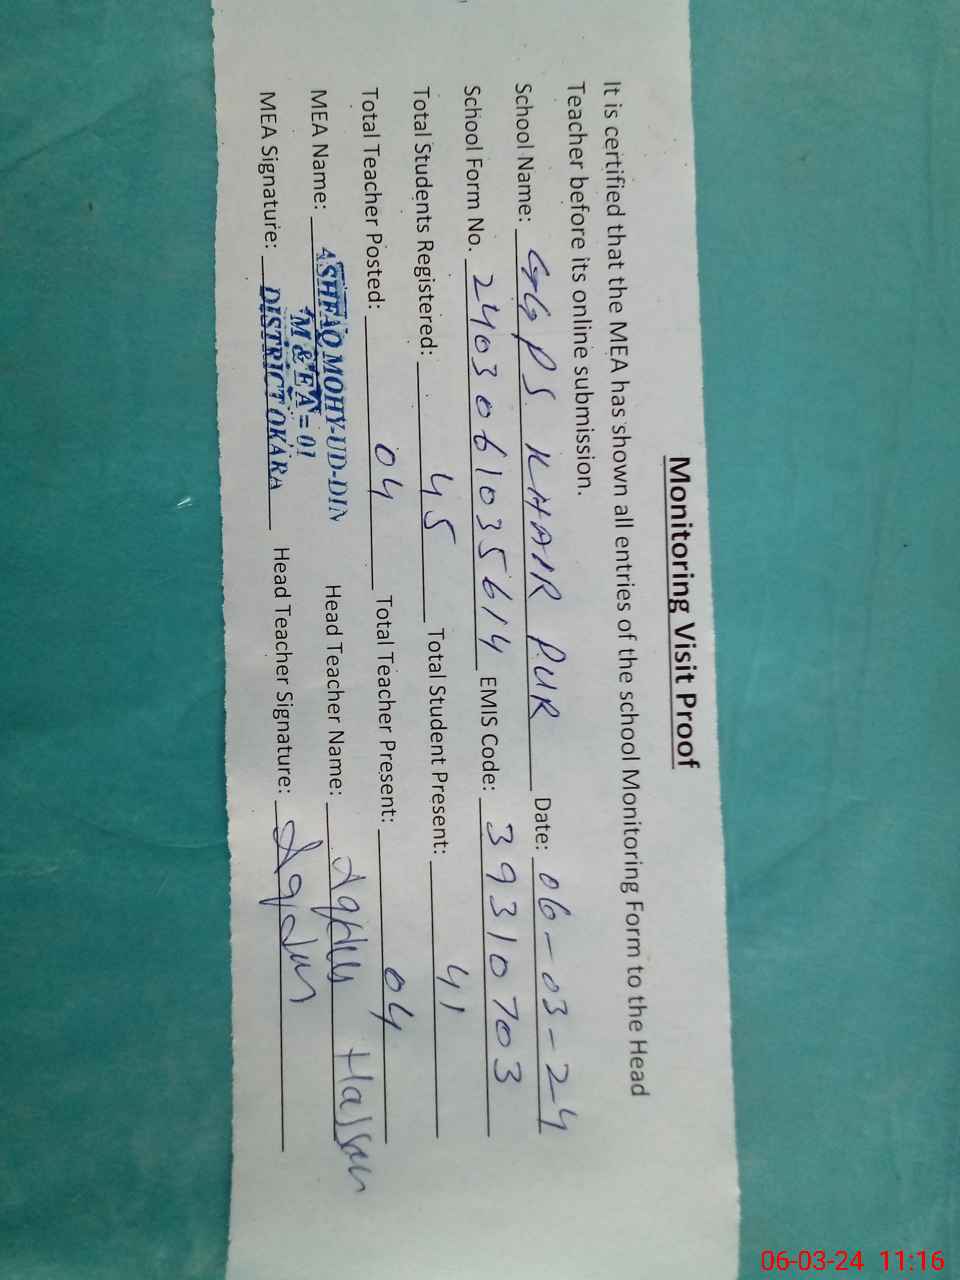 Monitoring Visit Proof
It is certified that the MEA has shown all entries of the school Monitoring Form to the Head
Teacher before its online submission.
School Name: GGPS KHAIR PUR Date: 06-03-24
School Form No. 2403061035614 EMIS Code: 39310703
Total Students Registered: 45 Total Student Present: 41
Total Teacher Posted: 04 Total Teacher Present: 04
MEA Name: ASHFAQ MOHY-UD-DIN Head Teacher Name: Hassan
M & E A = 01
MEA Signature: DISTRICT OKARA Head Teacher Signature:
06-03-24 11:16